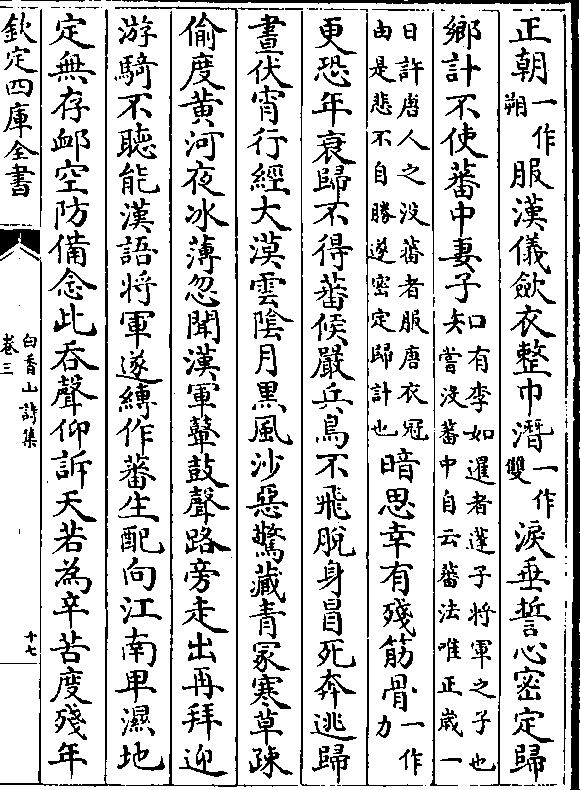 正朝一作朔服漢儀斂衣整巾潛一作雙淚垂誓心密定歸
鄉計不使蕃中妻子知有李如暹者蓬子將軍之子也嘗沒蕃中自云蕃法唯正歲一
日許唐人之没蕃者服唐衣冠由是悲不自勝遂密定歸計也暗思幸有殘筋骨一作力
更恐年衰歸不得蕃候嚴兵鳥不飛脫身冒死奔逃歸
晝伏宵行經大漠雲陰月黒風沙惡驚藏青冢寒草疎
偷度黄河夜冰薄忽聞漢軍鼙鼓聲路旁走出再拜迎
游騎不聽能漢語將軍遂縛作蕃生配向江南卑濕地
定無存䘏空防備念此吞聲仰訴天若為辛苦度殘年
欽定四庫全書
白香山詩集
卷三
十七